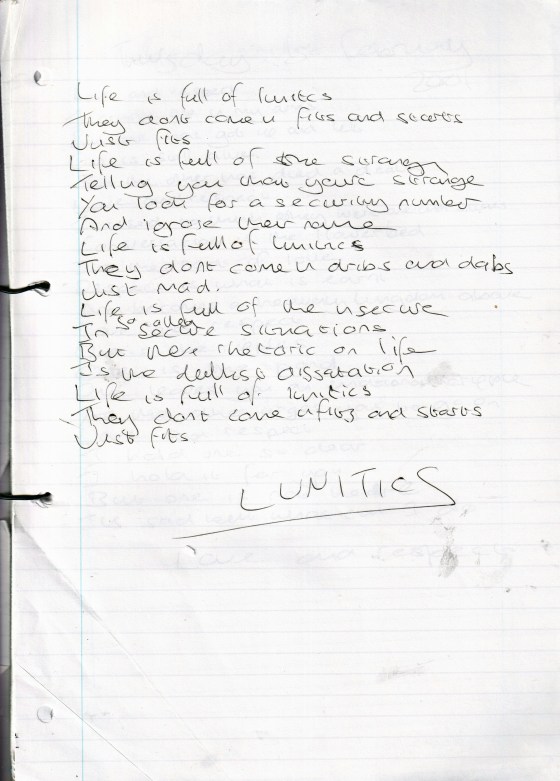 Life is full of lunitics
They dont come n fits and starts
Just fits
Life is full of the strange
Telling you that youre strange
You look for a security number
And ignore their name
Life is full of lunitics
They dont come n dribs and drabs
Just mad.
Life is full of the nsecure
In so called secure situations
But there rhetoric on life
Is the
Life is full of lunitics
They dont come n fits and starts
Just fits
LUNITICS